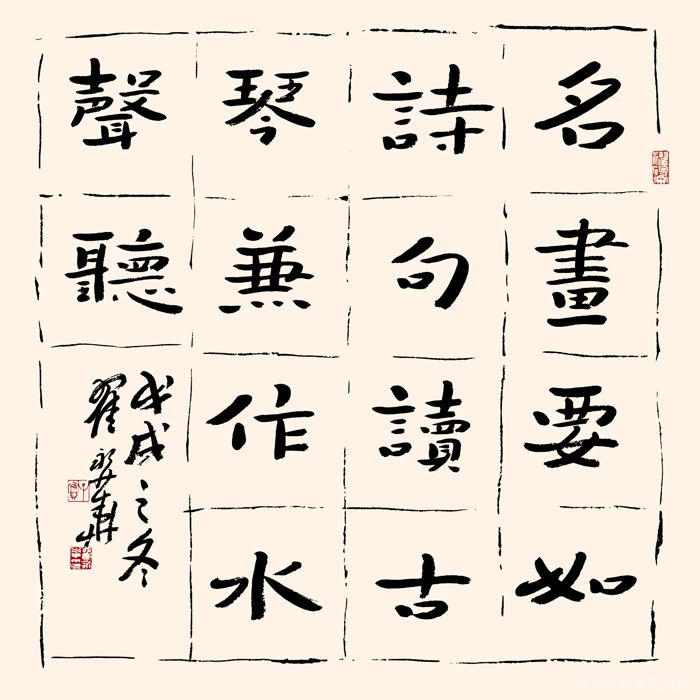 名畫要如
詩句讀古
琴兼作水
聲聽
戊戌之冬